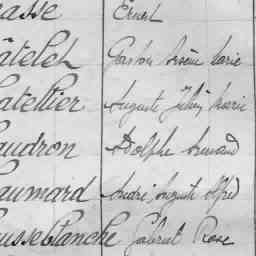 asse Ernest
âtelet Gaston Arsène Marie
atellier Auguste Jules Marie
audron Adolphe Armand
aumard André Auguste Alfred
ausseblanche Gabriel Rose